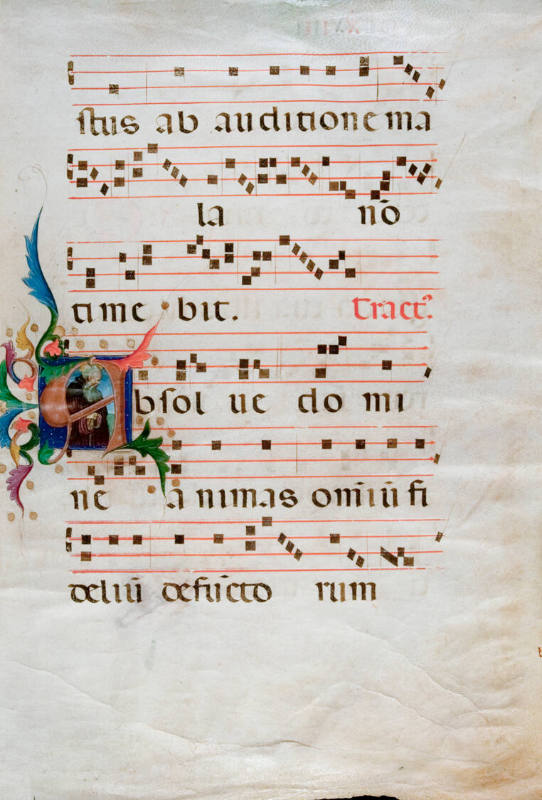 stus ab auditione ma
la nō
time bit. Tractꝰ.
Absol ue do mi
ne animas om̄iū fi
deliū defūcto rum